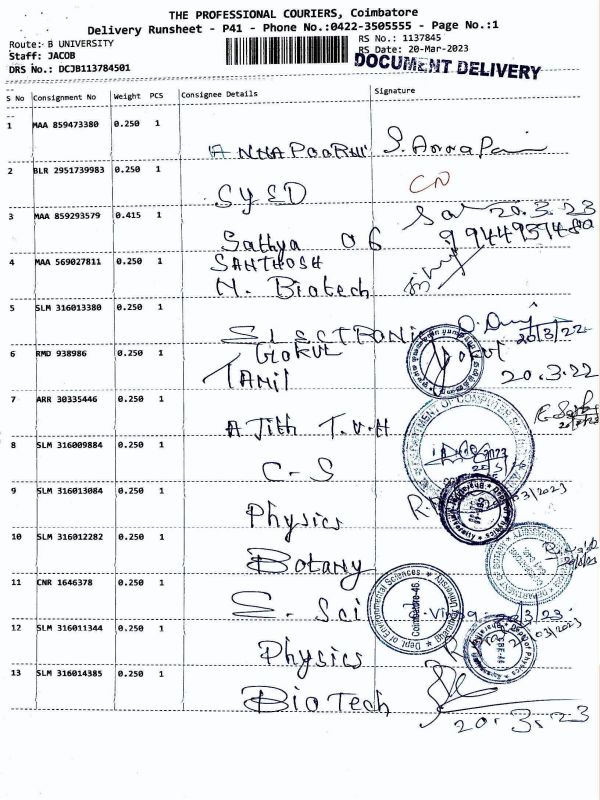 THE PROFESSIONAL COURIERS, Coimbatore
Delivery Runsheet - P41 - Phone No.:0422-3505555 - Page No.:1
Route: B UNIVERSITY
RS No.: 1137845
Staff: JACOB
RS Date: 20-Mar-2023
DRS No.: DCJB113784501
DOCUMENT DELIVERY
S No Consignment No Weight PCS Consignee Details Signature
1 MAA 859473380 0.250 1
ANNAPOORNI
2 BLR 2951739983 0.250 1
SYED
3 MAA 859293579 0.415 1
20.3.23
Sathya 06
4 MAA 569027811 0.250 1
SANTHOSH
M. Biotech
5 SLM 316013380 0.250 1
SLECTRONI
20/3/22
6 RMD 938986 0.250 1
Gokul Gokul
TAMIL
20.3.22
7 ARR 30335446 0.250 1
AJith T.V.H
8 SLM 316009884 0.250 1
DEPARTMENT OF COMPUTER
C-S
9 SLM 316013084 0.250 1
Physics
Dept of Physics
10 SLM 316012282 0.250 1
Botany
11 CNR 1646378 0.250 1
Dept of Environmental Sciences
Bharathiar University
Coimbatore-46
S. Sci
12 SLM 316011344 0.250 1
Physics
Dept of Physics
13 SLM 316014385 0.250 1
BioTech
20.3.23